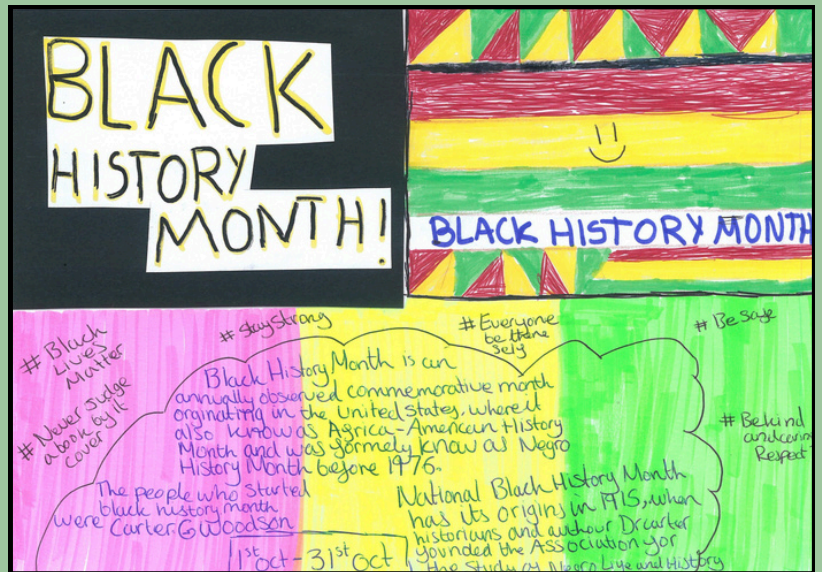 BLACK
HISTORY
MONTH!
BLACK HISTORY MONTH
# Black
Lives
Matter
# Stay Strong
# Everyone
be there
self
# Be safe
# Never Judge
a book by it
cover
# Be kind
and caring
Respect
Black History Month is an
annually observed commemorative month
orginating in the United States, where it
also know as Africa-American History
Month and was formely know as Negro
History Month before 1976.
The people who started
black history month
were Carter G Woodson
1st Oct - 31st Oct
National Black History Month
has its origins in 1915, when
historians and authour Dr carter
founded the Association for
the Study of Negro Life and History